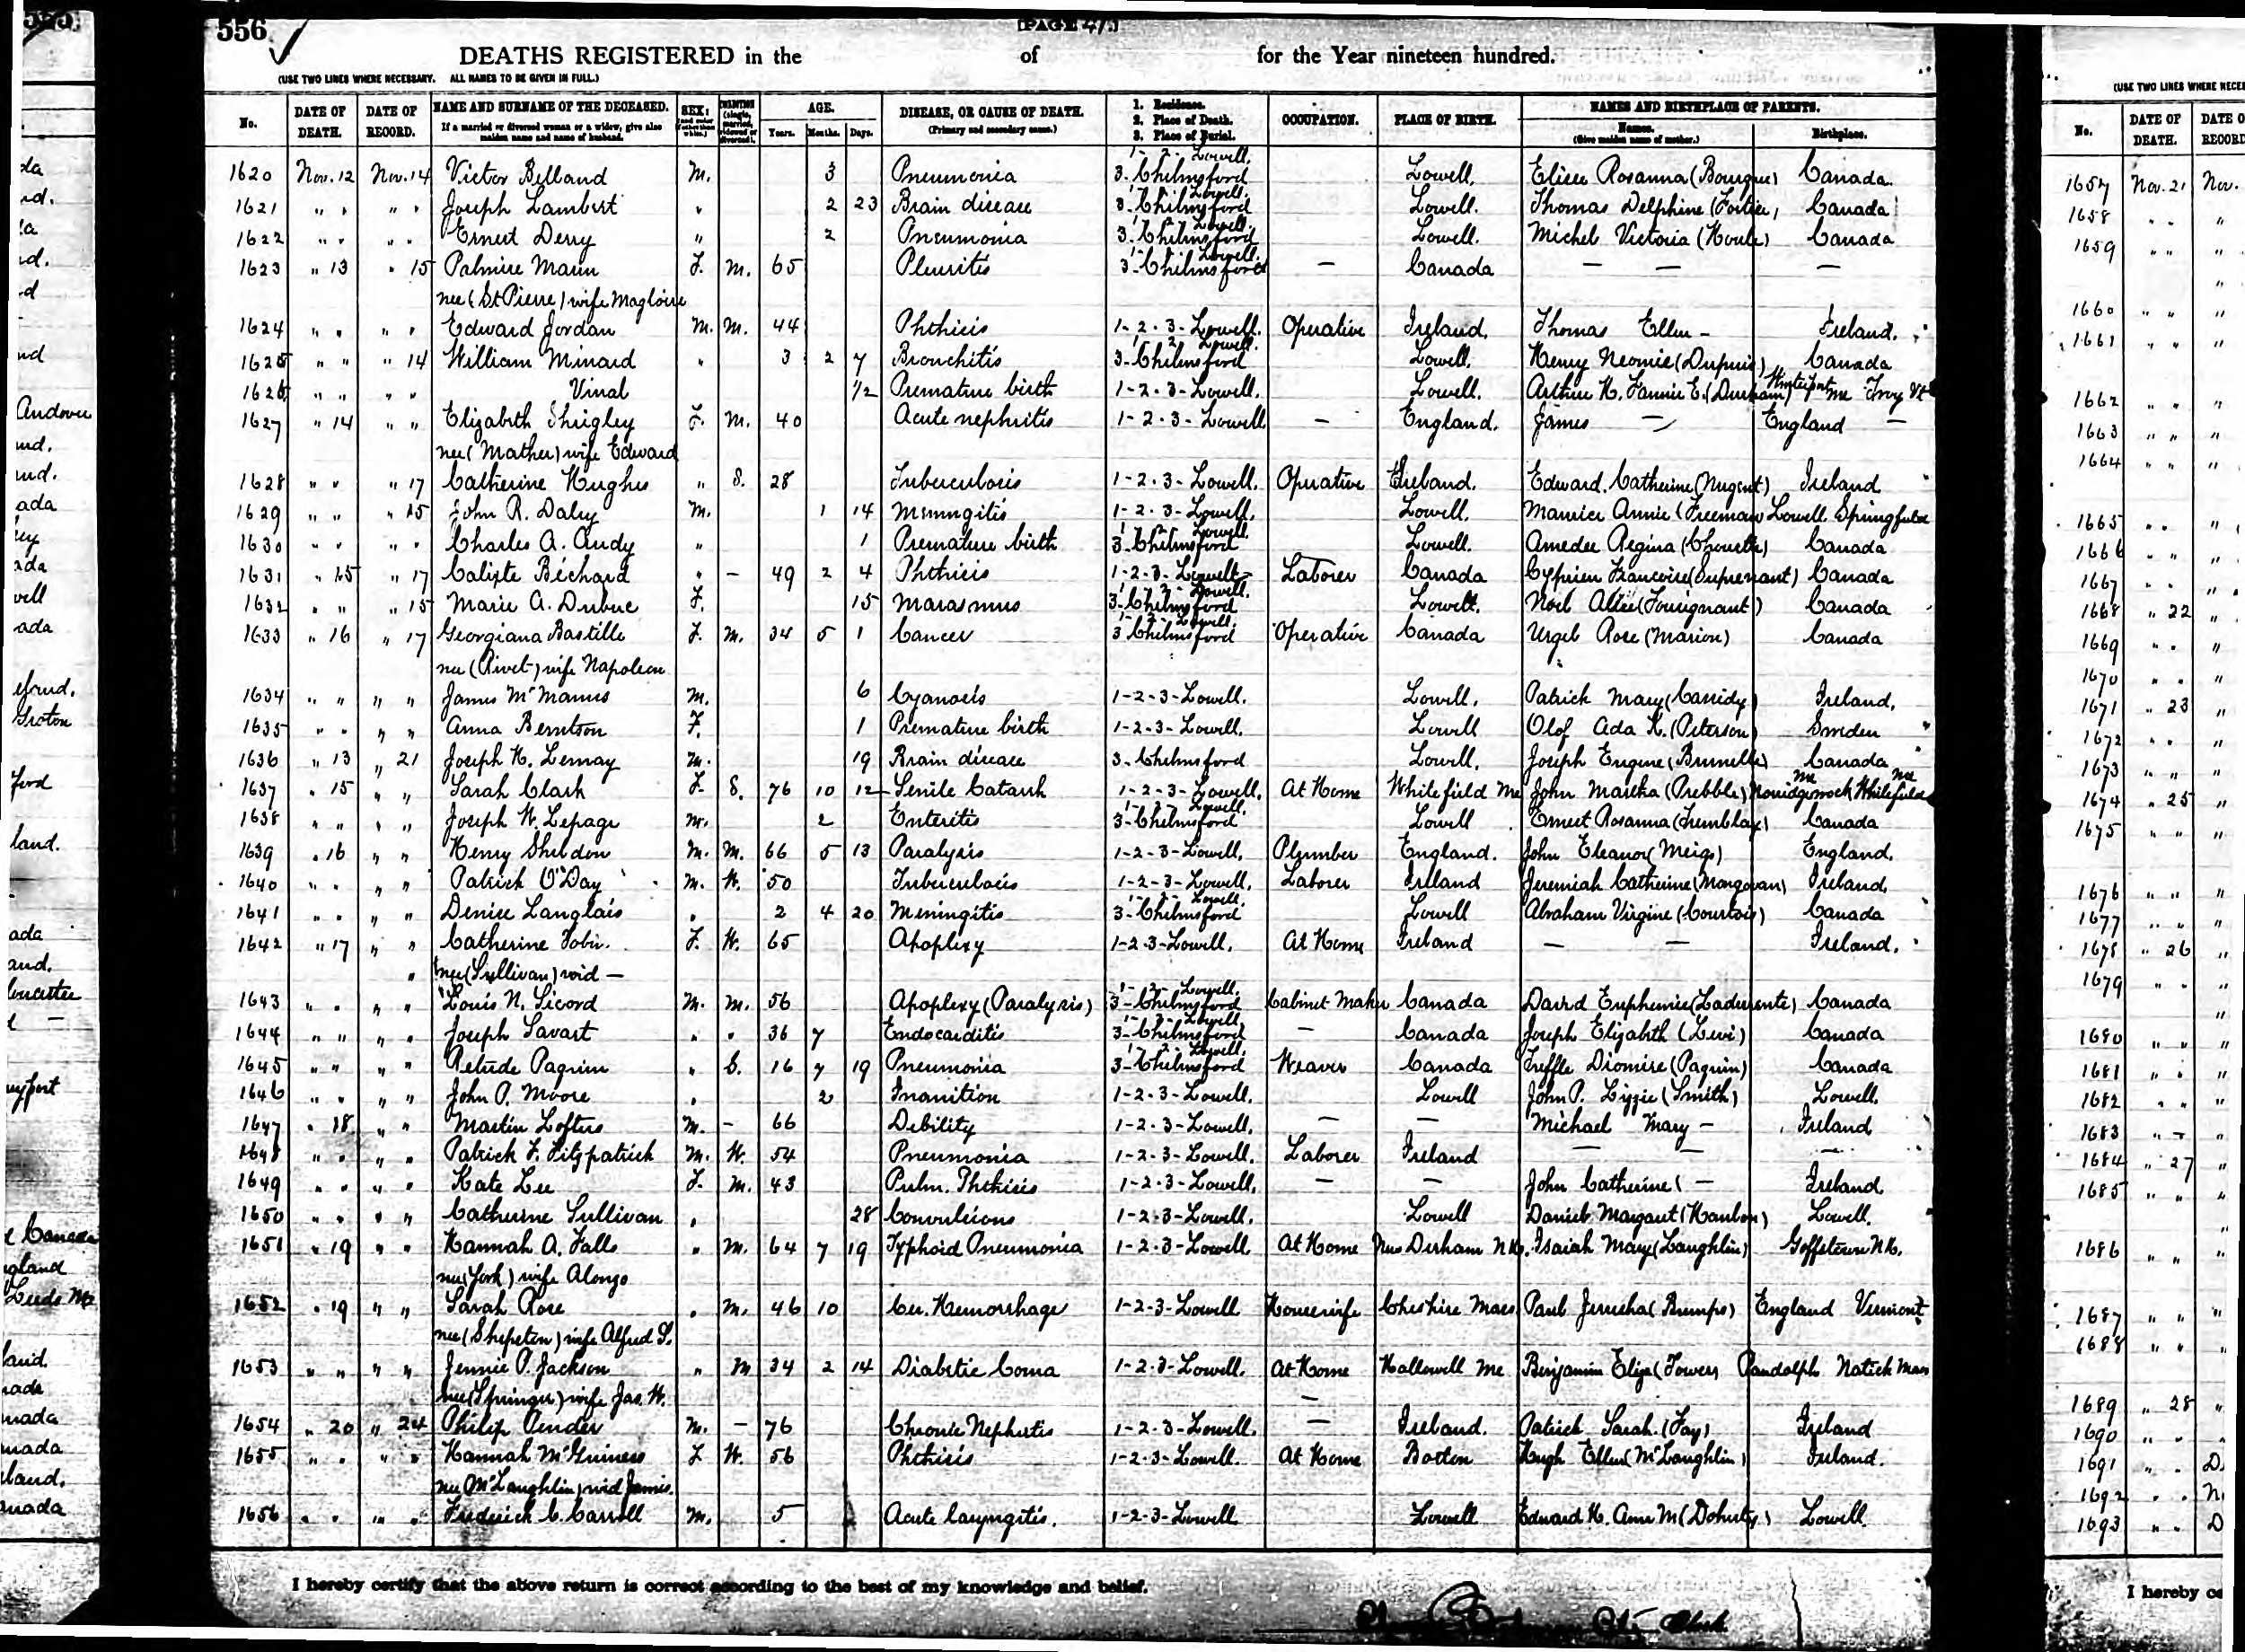 556
[PAGE 47]
DEATHS REGISTERED in the of for the Year nineteen hundred.
(USE TWO LINES WHERE NECESSARY. ALL NAMES TO BE GIVEN IN FULL.)
No. DATE OF DEATH. DATE OF RECORD. NAME AND SURNAME OF THE DECEASED. If a married or divorced woman or a widow, give also maiden name and name of husband. SEX; AGE. Years. Months. Days. DISEASE, OR CAUSE OF DEATH. (Primary and secondary cause.) 1. Residence. 2. Place of Death. 3. Place of Burial. OCCUPATION. PLACE OF BIRTH. NAMES AND BIRTHPLACE OF PARENTS. Names. (Give maiden name of mother.) Birthplace.
1620 Nov. 12 Nov. 14 Victor Belland M. 3 Pneumonia 1-2- Lowell. 3. Chelmsford Lowell. Rosanna (Bourque) Canada.
1621 " " " " Joseph Lambert " 2 23 Brain disease 1-2- Lowell. 3. Chelmsford Lowell. Thomas Delphine (Fortier) Canada
1622 " " " " Ernest Derry " 2 Pneumonia 1-2- Lowell. 3. Chelmsford Lowell. Michel Victoria (Houle) Canada
1623 " 13 " 15 Palmire Marin F. M. 65 Pleuritis 1-2- Lowell. 3-Chelmsford — Canada — — —
nee (St Pierre) wife Magloire
1624 " " " " Edward Jordan M. M. 44 Phthisis 1-2-3-Lowell. Operative Ireland. Thomas Ellen - Ireland.
1625 " " " 14 William Minard " 3 2 7 Bronchitis 1-2- Lowell. 3-Chelmsford Lowell. Henry Neomie (Dupuis) Canada
1626 " " " " Vinal 1/2 Premature birth 1-2-3-Lowell. Lowell. Arthur H. Fannie E. (Durham) Winterport Me Troy Vt
1627 " 14 " " Elizabeth Shigley F. M. 40 Acute nephritis 1-2-3-Lowell — England. James — England —
nee (Mather) wife Edward
1628 " " " 17 Catherine Hughes " S. 28 Tuberculosis 1-2-3-Lowell. Operative Ireland. Edward. Catherine (Nugent) Ireland
1629 " " " 15 John R. Daley M. 1 14 Meningitis 1-2-3-Lowell. Lowell. Maurice Annie (Freeman) Lowell. Springfield
1630 " " " " Charles A. Andy " 1 Premature birth 1-2- Lowell. 3-Chelmsford Lowell. Amedee Regina (Chouette) Canada
1631 " 15 " 17 Calixte Béchard " — 49 2 4 Phthisis 1-2-3-Lowell- Laborer Canada Cyprien Francoise (Suprenant) Canada
1632 " " " 15 Marie A. Dubuc F. 15 Marasmus 1-2- Lowell. 3-Chelmsford Lowell. Noel (Tourignant) Canada
1633 " 16 " 17 Georgiana Bastille F. M. 34 5 1 Cancer 1-2- Lowell. 3 Chelmsford Operative Canada Rose (Marion) Canada
nee (Rivet) wife Napoleon
1634 " " " " James McManus M. 6 Cyanosis 1-2-3-Lowell. Lowell. Patrick Mary (Cassidy) Ireland.
1635 " " " " Anna Berntson F. 1 Premature birth 1-2-3-Lowell. Lowell Olof Ada K. (Peterson) Sweden
1636 " 13 " 21 Joseph H. Lemay M. 19 Brain disease 3-Chelmsford Lowell. Joseph Eugene (Brunelle) Canada
1637 " 15 " " Sarah Clark F. S. 76 10 12 Senile Catarrh 1-2-3-Lowell. At Home Whitefield Me John Martha (Prebble) Norridgewock Me Whitefield Me
1638 " " " " Joseph W. Lepage M. 2 Enteritis 1-2- Lowell. 3-Chelmsford Lowell Ernest Rosanna (Tremblay) Canada
1639 " 16 " " Henry Sheldon M. M. 66 5 13 Paralysis 1-2-3-Lowell. Plumber England. John Eleanor (Meigs) England.
1640 " " " " Patrick O'Day M. W. 50 Tuberculosis 1-2-3-Lowell. Laborer Ireland Jeremiah Catherine (Mangovan) Ireland
1641 " " " " Denise Langlais " 2 4 20 Meningitis 1-2- Lowell. 3-Chelmsford Lowell Abraham Virgine (Courtois) Canada
1642 " 17 " " Catherine Tobin. F. W. 65 Apoplexy 1-2-3-Lowell. At Home Ireland — — Ireland.
" nee (Sullivan) wid —
1643 " " " " Louis N. Sicord M. M. 56 Apoplexy (Paralysis) 1-2- Lowell. 3-Chelmsford Cabinet Maker Canada David Euphemie Canada
1644 " " " " Joseph Savart " " 36 7 Endocarditis 1-2- Lowell 3-Chelmsford — Canada Joseph Elizabeth (Levi) Canada
1645 " " " " Paquin " S. 16 7 19 Pneumonia 1-2- Lowell. 3-Chelmsford Weaver Canada Treffle Diomire (Paquin) Canada
1646 " " " " John P. Moore " 2 Inanition 1-2-3-Lowell. Lowell John P. Lizzie (Smith) Lowell.
1647 " 18 " " Martin Loftus M. - 66 Debility 1-2-3-Lowell. — — Michael Mary - Ireland
1648 " " " " Patrick F. Fitzpatrick M. W. 54 Pneumonia 1-2-3-Lowell. Laborer Ireland — — —
1649 " " " " Kate Lee F. M. 43 Pulm. Phthisis 1-2-3-Lowell. — — John Catherine ( - Ireland
1650 " " " " Catherine Sullivan " 28 Convulsions 1-2-3-Lowell. Lowell Daniel Margaret (Hanlon) Lowell.
1651 " 19 " " Hannah A. Falls " M. 64 7 19 Typhoid Pneumonia 1-2-3-Lowell At Home New Durham N H. Isaiah Mary (Laughlin) Goffstown N H.
nee (York) wife Alonzo
1652 " 19 " " Sarah Rose " M. 46 10 Cer. Hemorrhage 1-2-3-Lowell Housewife Cheshire Mass Paul Jerusha (Bumps) England Vermont
nee (Shepeton) wife Alfred S.
1653 " " " " Jennie P. Jackson " M 34 2 14 Diabetic Coma 1-2-3-Lowell. At Home Hallowell Me Benjamin Eliza (Towers Randolph Natick Mass
nee (Springer) wife Jas. W. —
1654 " 20 " 24 Philip Pender M. — 76 Chronic Nephritis 1-2-3-Lowell. — Ireland. Patrick Sarah. (Fay) Ireland
1655 " " " " Hannah McGuiness F W. 56 Phthisis 1-2-3-Lowell. At Home Boston Hugh Ellen (McLaughlin) Ireland.
nee (McLaughlin) wid James.
1656 " " " " Frederick C. Carroll M. 5 Acute laryngitis. 1-2-3-Lowell Lowell Edward H. Ann M (Doherty) Lowell.
I hereby certify that the above return is correct according to the best of my knowledge and belief.
Clerk.
(USE TWO LINES WHERE NECES
No. DATE OF DEATH. DATE O RECORD
1657 Nov. 21 Nov.
1658 " " "
1659 " " "
"
1660 " " "
1661 " " "
1662 " " "
1663 " " "
1664 " " "
1665 " " "
1666 " " "
1667 " " "
1668 " 22 "
1669 " " "
1670 " " "
1671 " 23 "
1672 " " "
1673 " " "
1674 " 25 "
1675 " " "
1676 " " "
1677 " " "
1678 " 26 "
1679 " " "
"
1680 " " "
1681 " " "
1682 " " "
1683 " " "
1684 " 27 "
1685 " " "
1686 " " "
1687 " " "
1688 " " "
1689 " 28 "
1690 " " "
1691 " " D
1692 " " N
1693 " " D
I hereby ce